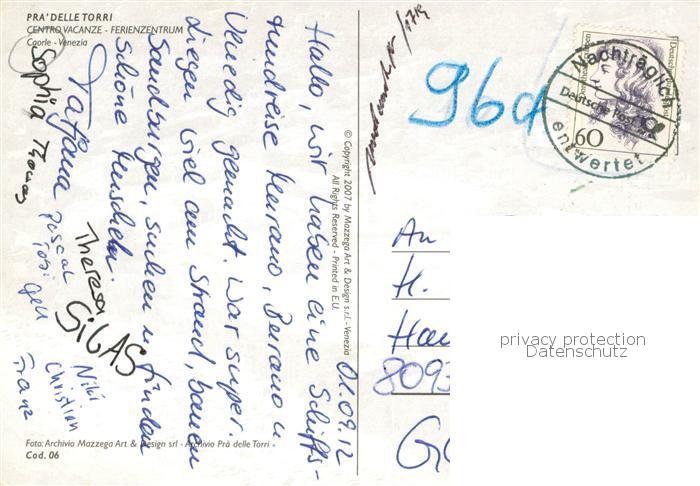 PRA' DELLE TORRI
CENTRO VACANZE - FERIENZENTRUM
Caorle - Venezia
01.09.12
Hallo, wir haben eine Schiffs-
rundreise Murano, Burano u.
Venedig gemacht. War super.
Liegen viel am Strand, bauen
Sandburgen, suchen u. finden
schöne Muscheln.
Tatjana
Sophia Thomas
Pascal
Theresa
GiGAS
Niki
Christian
Franz
© Copyright 2007 by Mazzega Art & Design s.r.l. - Venezia
All Rights Reserved - Printed in E.U.
Foto: Archivio Mazzega Art & Design srl - Archivio Prà delle Torri -
Cod. 06
96d
Nachträglich
Deutsche Post AG
entwertet
60
An
H.
Hau
8093
privacy protection
Datenschutz